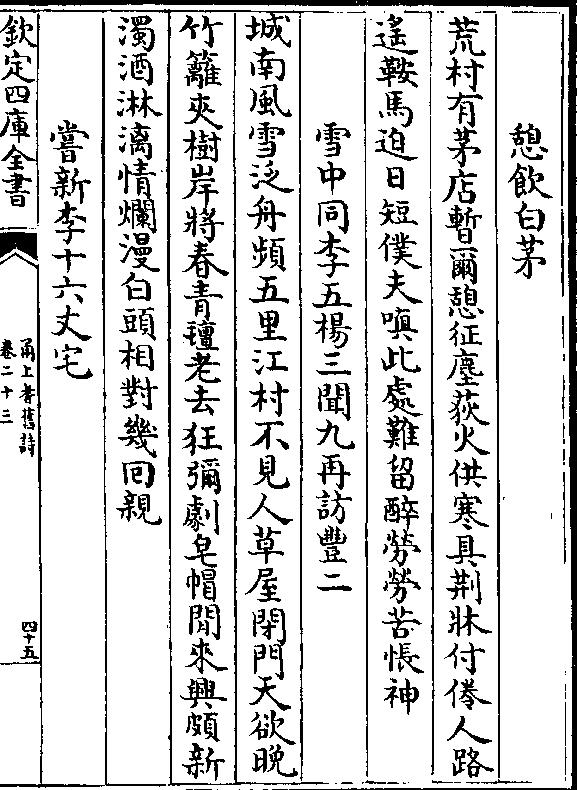 憩飲白茅
荒村有茅店暫爾憩征塵荻火供寒具荆牀付倦人路
遙鞍馬迫日短僕夫嗔此處難留醉勞勞苦悵神
雪中同李五楊三聞九再訪豐二
城南風雪泛舟頻五里江村不見人草屋閉門天欲晚
竹籬夾樹岸將春青氊老去狂彌劇皂帽閒來興頗新
濁酒淋漓情爛漫白頭相對幾囘親
嘗新李十六丈宅
欽定四庫全書
甬上耆舊詩
卷二十三
四十五